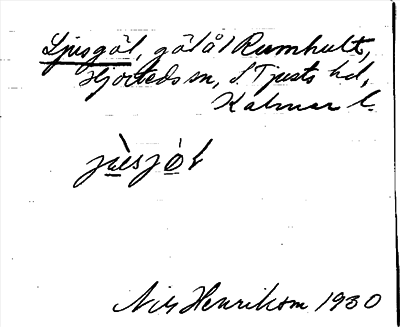 Ljusgöl, göl å Rumhult,
Hjorteds sn, S Tjusts hd,
Kalmar l.
jùsjö̀l
Nils Henrikson 1930